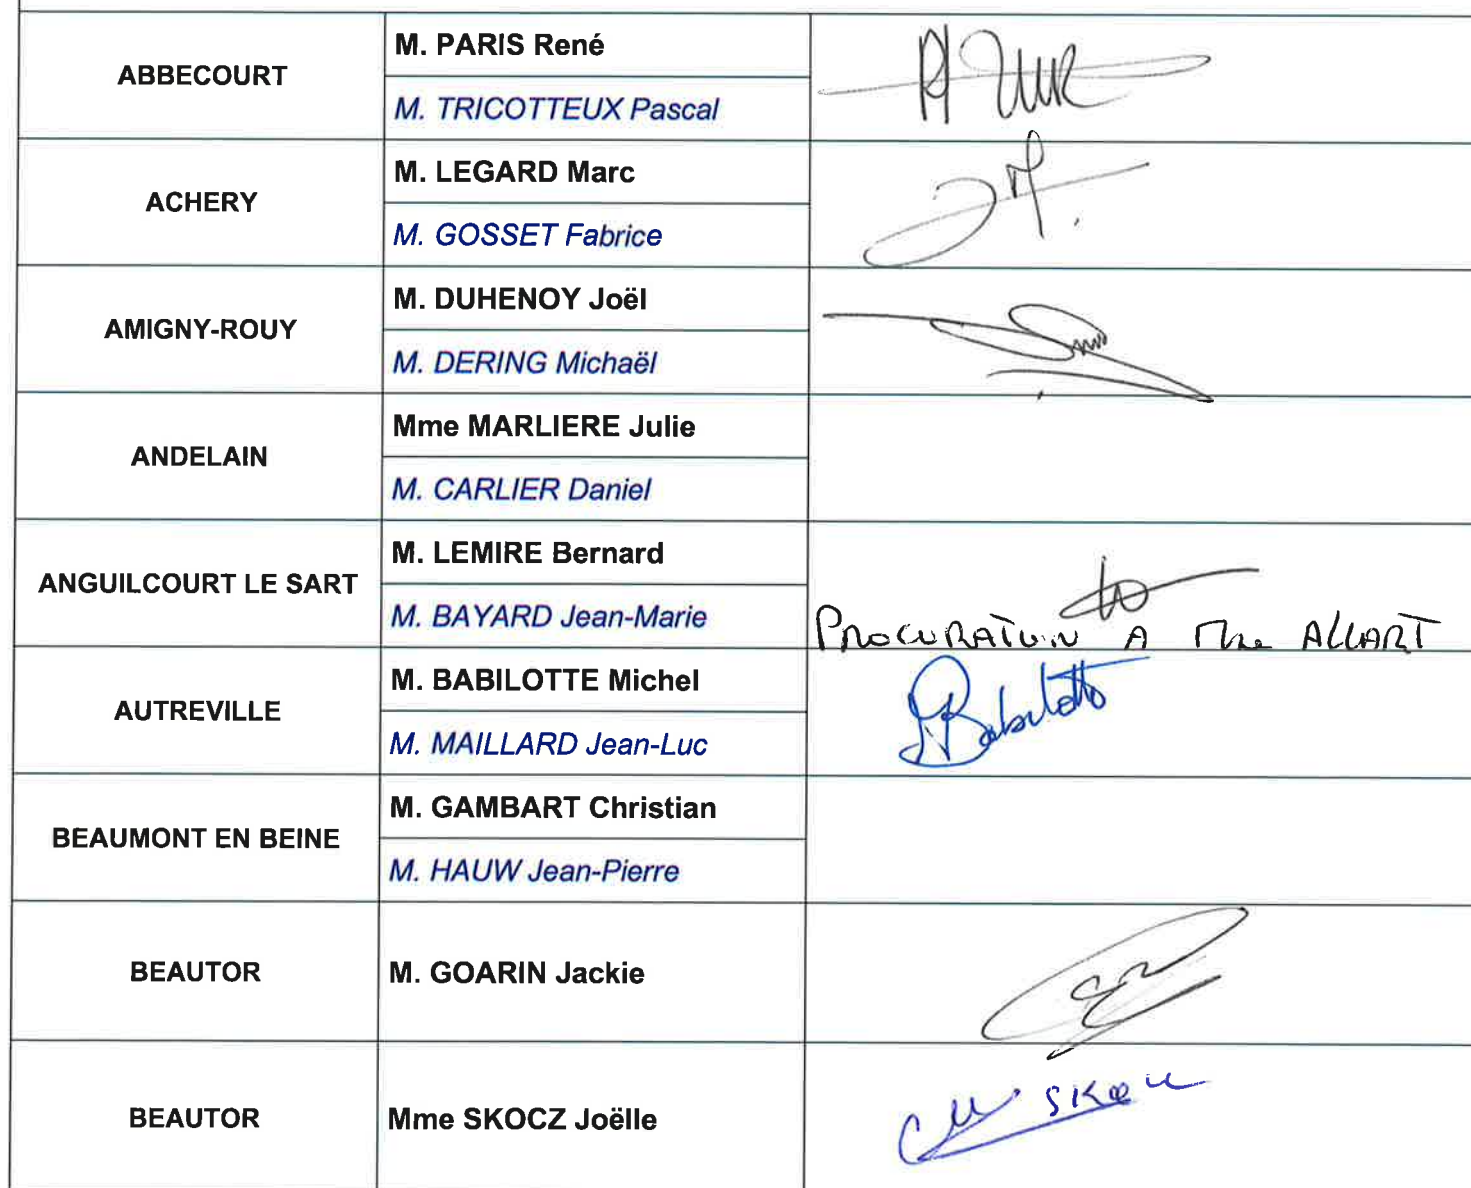 ABBECOURT
M. PARIS René
M. TRICOTTEUX Pascal
ACHERY
M. LEGARD Marc
M. GOSSET Fabrice
AMIGNY-ROUY
M. DUHENOY Joël
M. DERING Michaël
ANDELAIN
Mme MARLIERE Julie
M. CARLIER Daniel
ANGUILCOURT LE SART
M. LEMIRE Bernard
M. BAYARD Jean-Marie
PROCURATION A Mme ALLART
AUTREVILLE
M. BABILOTTE Michel
M. MAILLARD Jean-Luc
BEAUMONT EN BEINE
M. GAMBART Christian
M. HAUW Jean-Pierre
BEAUTOR
M. GOARIN Jackie
BEAUTOR
Mme SKOCZ Joëlle